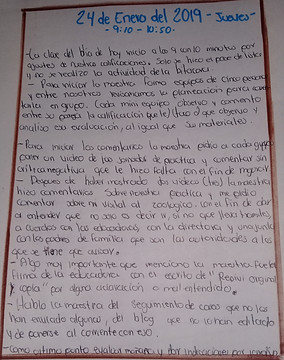 24 de Enero del 2019 - Jueves -
- 9:10 - 10:50 -
- La clase del día de hoy inicio a las 9 con 10 minutos por
ajustes de nuestras calificaciones. Solo se hizo el pase de lista
y no se realizo la actividad de la bitacora.
- Para iniciar la maestra formo equipos de cinco personas
y entre nosotras revisamos la planeación para comen-
tarla en grupo. Cada mini equipo observo y comento
entre su pareja la calificación que le que observo y
analizo su evaluación, al igual que su materiales.
- Para iniciar los comentarios la maestra pidio a cada grupo
poner un video de las jornadas de practica y comentar sin
critica negativa que le hizo falta con el fin de mejorar
- Despues de haber mostrado dos videos (tres) la maestra
hizo comentarios sobre nuestra practica y me pidio
comentar sobre mi visita al zoologico. con el fin de abor
al entender que no solo es decir ir, si no que lleva tramites,
a cuerdos con las educadoras, con la directora y una junta
con los padres de familia que son las autoridades a las
que se tiene que acudir.
- Algo muy importante que menciono la maestra fue la
firma de la educadora con el escrito de "Recivi original
y copia" por alguna aclaración o mal entendido.
- Hablo la maestra del seguimiento de casos que no la
han enviado algunas, del blog que no lo han editado
y de ponerse al corriente con eso.
- Como ultimo punto evaluar mañana y dar indicaciones por